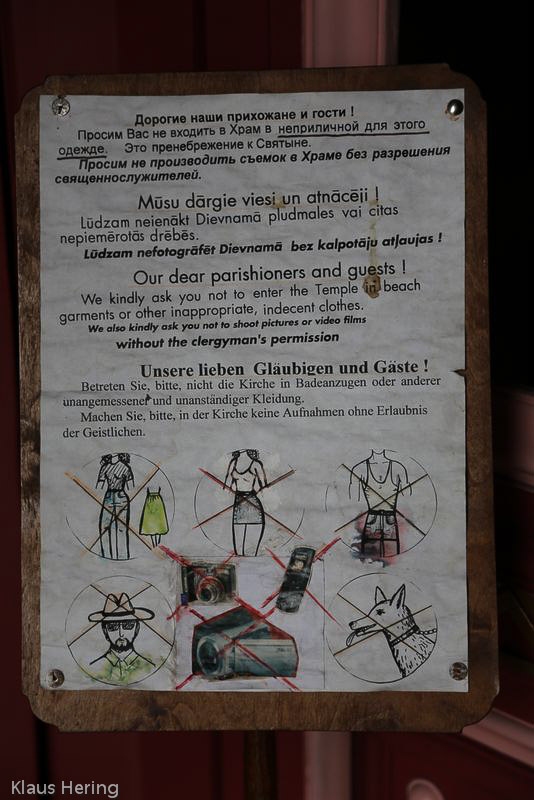 Дорогие наши прихожане и гости !
Просим Вас не входить в Храм в неприличной для этого
одежде. Это пренебрежение к Святыне.
Просим не производить съемок в Храме без разрешения
священнослужителей.
Mūsu dārgie viesi un atnācēji !
Lūdzam neienākt Dievnamā pludmales vai citas
nepiemērotās drēbēs.
Lūdzam nefotogrāfēt Dievnamā bez kalpotāju atļaujas !
Our dear parishioners and guests !
We kindly ask you not to enter the Temple in beach
garments or other inappropriate, indecent clothes.
We also kindly ask you not to shoot pictures or video films
without the clergyman's permission
Unsere lieben Gläubigen und Gäste !
Betreten Sie, bitte, nicht die Kirche in Badeanzugen oder anderer
unangemessener und unanständiger Kleidung.
Machen Sie, bitte, in der Kirche keine Aufnahmen ohne Erlaubnis
der Geistlichen.
Klaus Hering